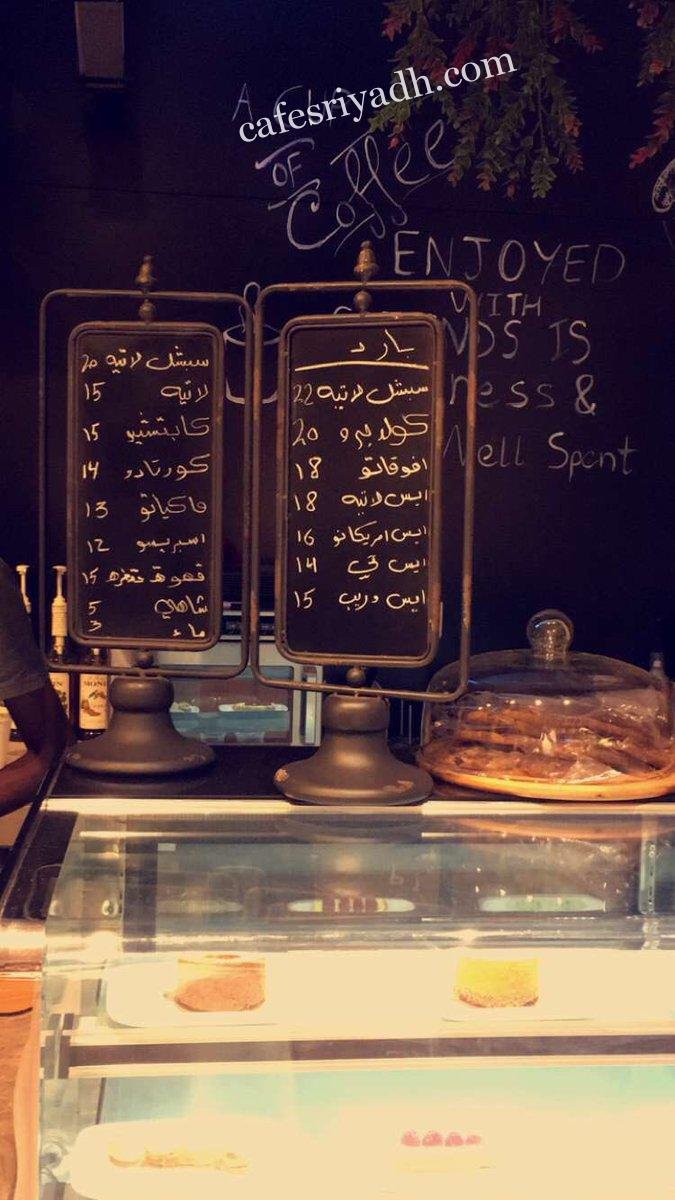 cafesriyadh.com
A CUP
OF
Coffee
ENJOYED
WITH
NDS IS
ness &
Well Spent
سبشل لاتيه 20
لاتيه 15
كابتشينو 15
كورتادو 14
ماكياتو 13
اسبريسو 12
قهوة مقطره 15
شاهي 5
ماء 3
بارد
سبشل لاتيه 22
كولد برو 20
افوقاتو 18
ايس لاتيه 18
ايس امريكانو 16
ايس تي 14
ايس دريب 15